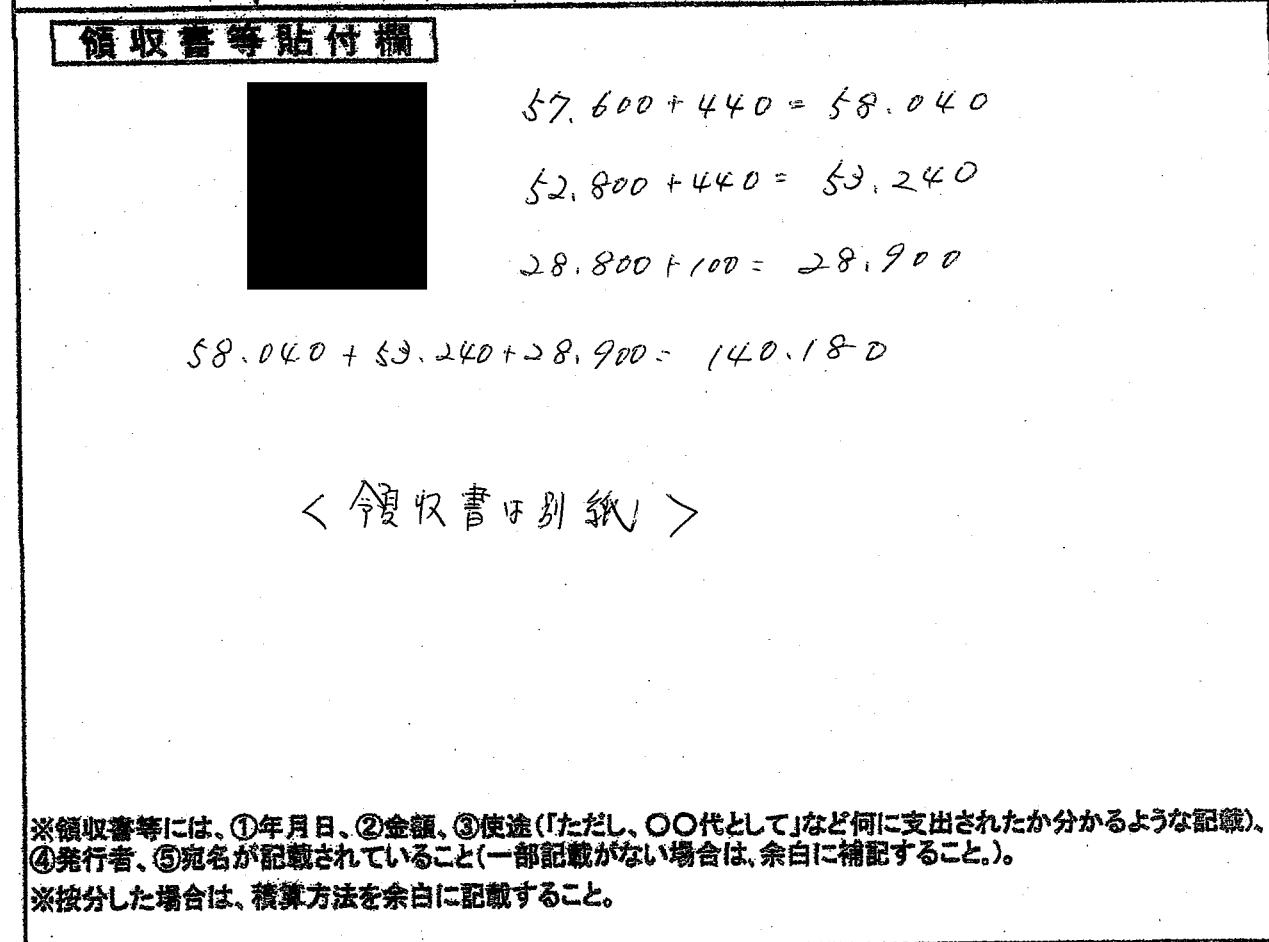 領収書等貼付欄
57.600+440=58.040
52.800+440=53.240
28.800+100=28.900
58.040+53.240+28.900=140.180
<領収書は別紙>
※領収書等には、①年月日、②金額、③使途(「ただし、〇〇代として」など何に支出されたか分かるような記載)、
④発行者、⑤宛名が記載されていること(一部記載がない場合は、余白に補記すること。)。
※按分した場合は、積算方法を余白に記載すること。